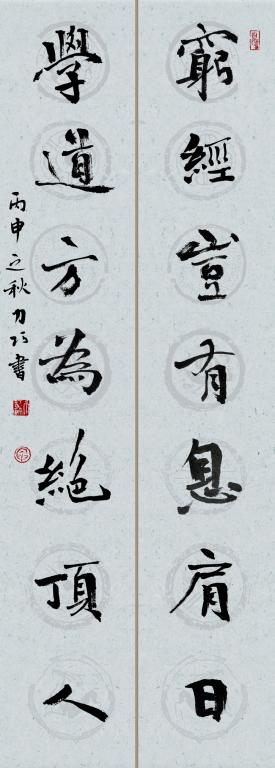 窮經豈有息肩日
學道方為絶頂人
丙申之秋力巧書